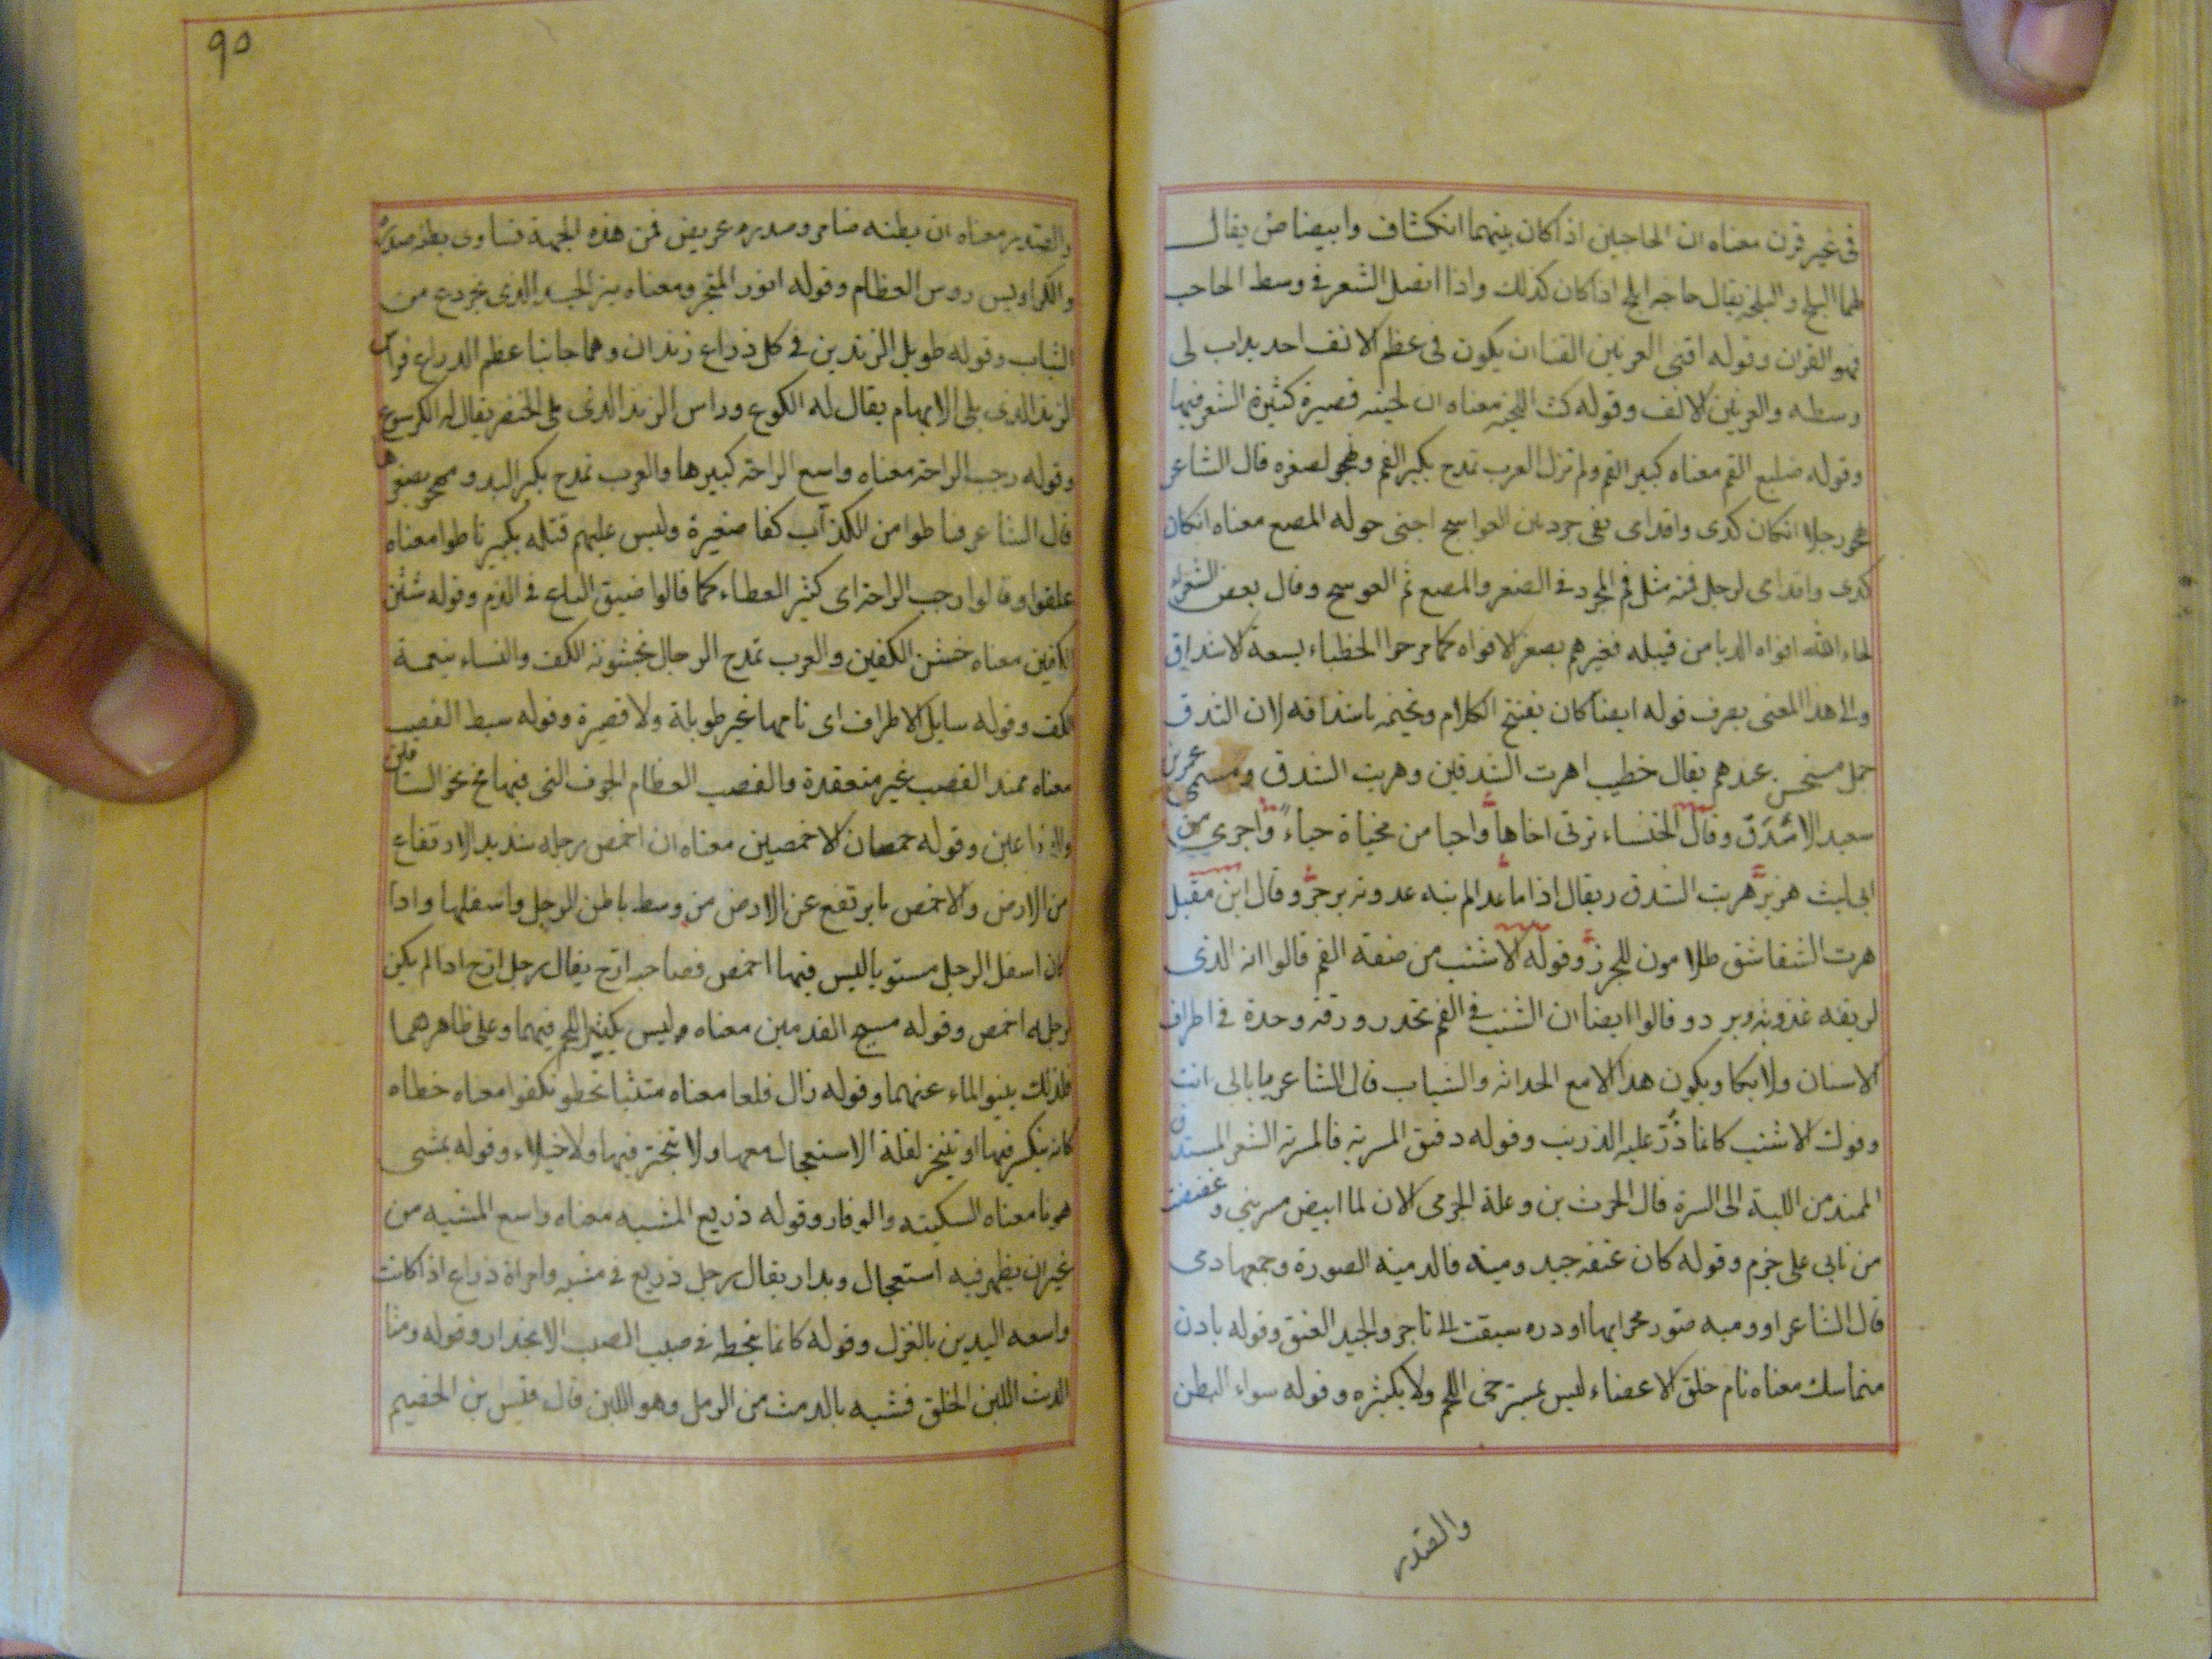 فى غير قرن معناه ان الحاجبين اذا كان بينهما انكشاف وابيضاض يقال
لهما البلج والبلجة يقال حاجبه ابلج اذا كان كذلك واذا اتصل الشعر فى وسط الحاجب
فهو القرن وقوله اقنى العرنين القنا ان يكون فى عظم الانف احديداب لى
وسطه والعرنين الانف وقوله كث اللحية معناه ان لحيته قصيرة كثيرة الشعر فيها
وقوله ضليع الفم معناه كبير الفم ولم تزل العرب تمدح بكبر الفم وتهجو لصغره قال الشاعر
رجلا انكان كدى واقدامى لفى جرد بين العواسج اجنى حوله المصع معناه انكان
كدى واقدامى لرجل فمه مثل فم الجرد فى الصغر والمصع ثمر العوسج وقال بعض الشعراء
لحا الله افواه الدبا من قبيله فغيرهم بصغر الافواه كما مدحوا الخطباء بسعة الاشداق
والى هذا المعنى يصرف قوله ايضا كان يفتتح الكلام ويختمه باشداقه لان الشدق
جميل مستحسن عندهم يقال خطيب اهرت الشدقين وهريت الشدق وسمى عمرو بن
سعيد الاشدق وقال الخنساء ترثى اخاها واحيا من مخباة حياء واجرى من
ابى ليث هزبر هريت الشدق ريقال اذا ما عدا لم ينه عدوته بزجر وقال ابن مقبل
هرت الشقاشق ظلامون للجزر وقوله الاشنب من صفة الفم قالوا انه الذى
لريقه عذوبة وبرد وقالوا ايضا ان الشنب فى الفم تحدر ورقة وحدة فى اطراف
الاسنان ولا يكا ويكون هذا الا مع الحداثه والشباب قال الشاعر يا بابى انت
وفوك الاشنب كانما ذر عليه الذرنب وقوله دقيق المسربة فالمسربة الشعر المستدق
الممتد من اللبة الى السرة قال الحرث بن وعلة الجرمى الان لما ابيض مسربتى وعضضت
من نابى على جزم وقوله كان عنقه جيد دمية فالدمية الصورة وجمعها دمى
قال الشاعر او دمية صور محرابها او دره سيقت الى تاجر والجيد العنق وقوله بادن
متماسك معناه تام خلق الاعضاء ليس بمسترخى اللحم ولا بكثيره وقوله سواء البطن
والصدر
٩٥
والصدر معناه ان بطنه ضامر وصدره عريض فمن هذه الجهة تساوى بطنه صدره
والكراديس روس العظام وقوله انور المتجرد معناه نير الجسد الذى تجرد من
الثياب وقوله طويل الزندين فى كل ذراع زندان وهما جانبا عظم الذراع فراس
الزند الذى يلى الابهام يقال له الكوع وراس الزند الذى يلى الخنصر يقال له الكرسوع
وقوله رحب الراحة معناه واسع الراحة كبيرها والعرب تمدح بكبر اليد وتهجو بصغرها
قال الشاعر فناطوا من الكذاب كفا صغيرة وليس عليهم قتله بكبير ناطوا معناه
علقوا وقالوا رحب الراحة اى كثير العطاء كما قالوا ضيق الباع فى الذم وقوله شثن
الكفين معناه خشن الكفين والعرب تمدح الرجال بخشونة الكف والنساء بنعمة
الكف وقوله سايل الاطراف اى تامها غير طويلة ولا قصيرة وقوله سبط القصب
معناه ممتد القصب غير منعقدة والقصب العظام الجوف التى فيها مخ نحو الساقين
والذراعين وقوله خمصان الاخمصين معناه ان اخمص رجله شديد الارتفاع
من الارض والاخمص ما يرتفع عن الارض من وسط باطن الرجل واسفلها واذا
كان اسفل الرجل مستويا ليس فيها اخمص فصاحبه ارح يقال رجل ارح اذا لم يكن
لرجله اخمص وقوله مسيح القدمين معناه وليس بكثير اللحم فيهما وعلى ظاهرهما
فلذلك ينبو الماء عنهما وقوله زال قلعا معناه متثبتا تخطو تكفوا معناه خطاه
كانه يتكسر فيها او تبختر لقلة الاستعجال معها ولا تبختر فيها ولا خيلاء وقوله يمشى
هونا معناه السكينه والوقار وقوله ذريع المشيه معناه واسع المشيه من
غير ان يظهر فيه استعجال وبدار يقال رجل ذريع فى مشيه وامراة ذراع اذا كانت
واسعه اليدين بالغزل وقوله كانما ينحط فى صبب الصبب الانحدار وقوله دمثا
الدمث اللين الخلق فشبه بالدمث من الرمل وهو اللين قال قيس بن الخطيم